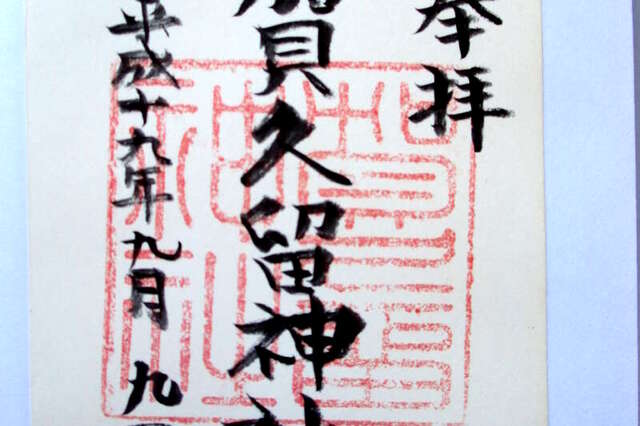 奉拝
賀久留神社
平成十九年九月九日